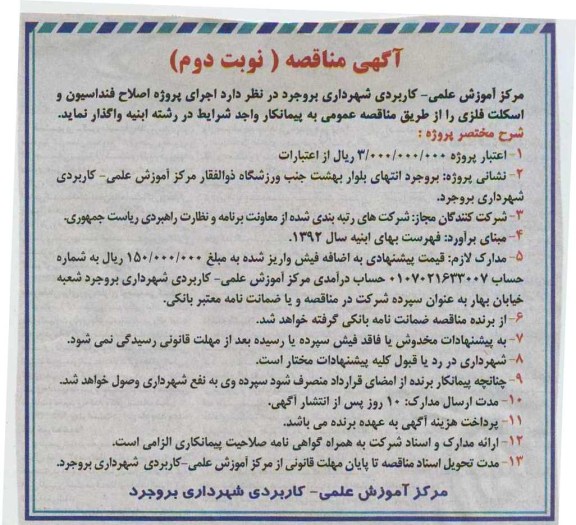 آگهی مناقصه ( نوبت دوم)
مرکز آموزش علمی- کاربردی شهرداری بروجرد در نظر دارد اجرای پروژه اصلاح فنداسیون و
اسکلت فلزی را از طریق مناقصه عمومی به پیمانکار واجد شرایط در رشته ابنیه واگذار نماید.
شرح مختصر پروژه :
۱- اعتبار پروژه ۳/۰۰۰/۰۰۰/۰۰۰ ریال از اعتبارات
۲- نشانی پروژه: بروجرد انتهای بلوار بهشت جنب ورزشگاه ذوالفقار مرکز آموزش علمی- کاربردی
شهرداری بروجرد.
۳- شرکت کنندگان مجاز: شرکت های رتبه بندی شده از معاونت برنامه و نظارت راهبردی ریاست جمهوری.
۴- مبنای برآورد: فهرست بهای ابنیه سال ۱۳۹۲.
۵- مدارک لازم: قیمت پیشنهادی به اضافه فیش واریز شده به مبلغ ۱۵۰/۰۰۰/۰۰۰ ریال به شماره
حساب ۰۱۰۷۰۲۱۶۳۳۰۰۷ حساب درآمدی مرکز آموزش علمی- کاربردی شهرداری بروجرد شعبه
خیابان بهار به عنوان سپرده شرکت در مناقصه و یا ضمانت نامه معتبر بانکی.
۶- از برنده مناقصه ضمانت نامه بانکی گرفته خواهد شد.
۷- به پیشنهادات مخدوش یا فاقد فیش سپرده یا رسیده بعد از مهلت قانونی رسیدگی نمی شود.
۸- شهرداری در رد یا قبول کلیه پیشنهادات مختار است.
۹- چنانچه پیمانکار برنده از امضای قرارداد منصرف شود سپرده وی به نفع شهرداری وصول خواهد شد.
۱۰- مدت ارسال مدارک: ۱۰ روز پس از انتشار آگهی.
۱۱- پرداخت هزینه آگهی به عهده برنده می باشد.
۱۲- ارائه مدارک و اسناد شرکت به همراه گواهی نامه صلاحیت پیمانکاری الزامی است.
۱۳- مدت تحویل اسناد مناقصه تا پایان مهلت قانونی از مرکز آموزش علمی-کاربردی شهرداری بروجرد.
مرکز آموزش علمی- کاربردی شهرداری بروجرد